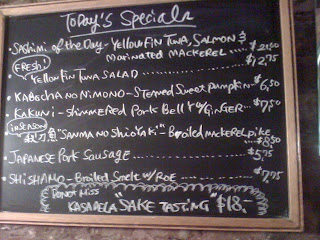 Today's Specials
• Sashimi of the Day - Yellowfin Tuna, Salmon &
Marinated Mackerel ... $21.50
Fresh!
• Yellowfin Tuna Salad ... $12.75
• Kabocha no Nimono - Steamed Sweet Pumpkin - $6.50
• Kakuni - Shimmered Pork Belly w/ Ginger ... $7.50
In Season
• "Sanma no Shioyaki" - Broiled mackerel pike
$8.50
• Japanese Pork Sausage ... $5.75
• Shishamo - Broiled Smelt w/ Roe ... $7.75
Do Not Miss
Kasadela "Sake Tasting" $18.-